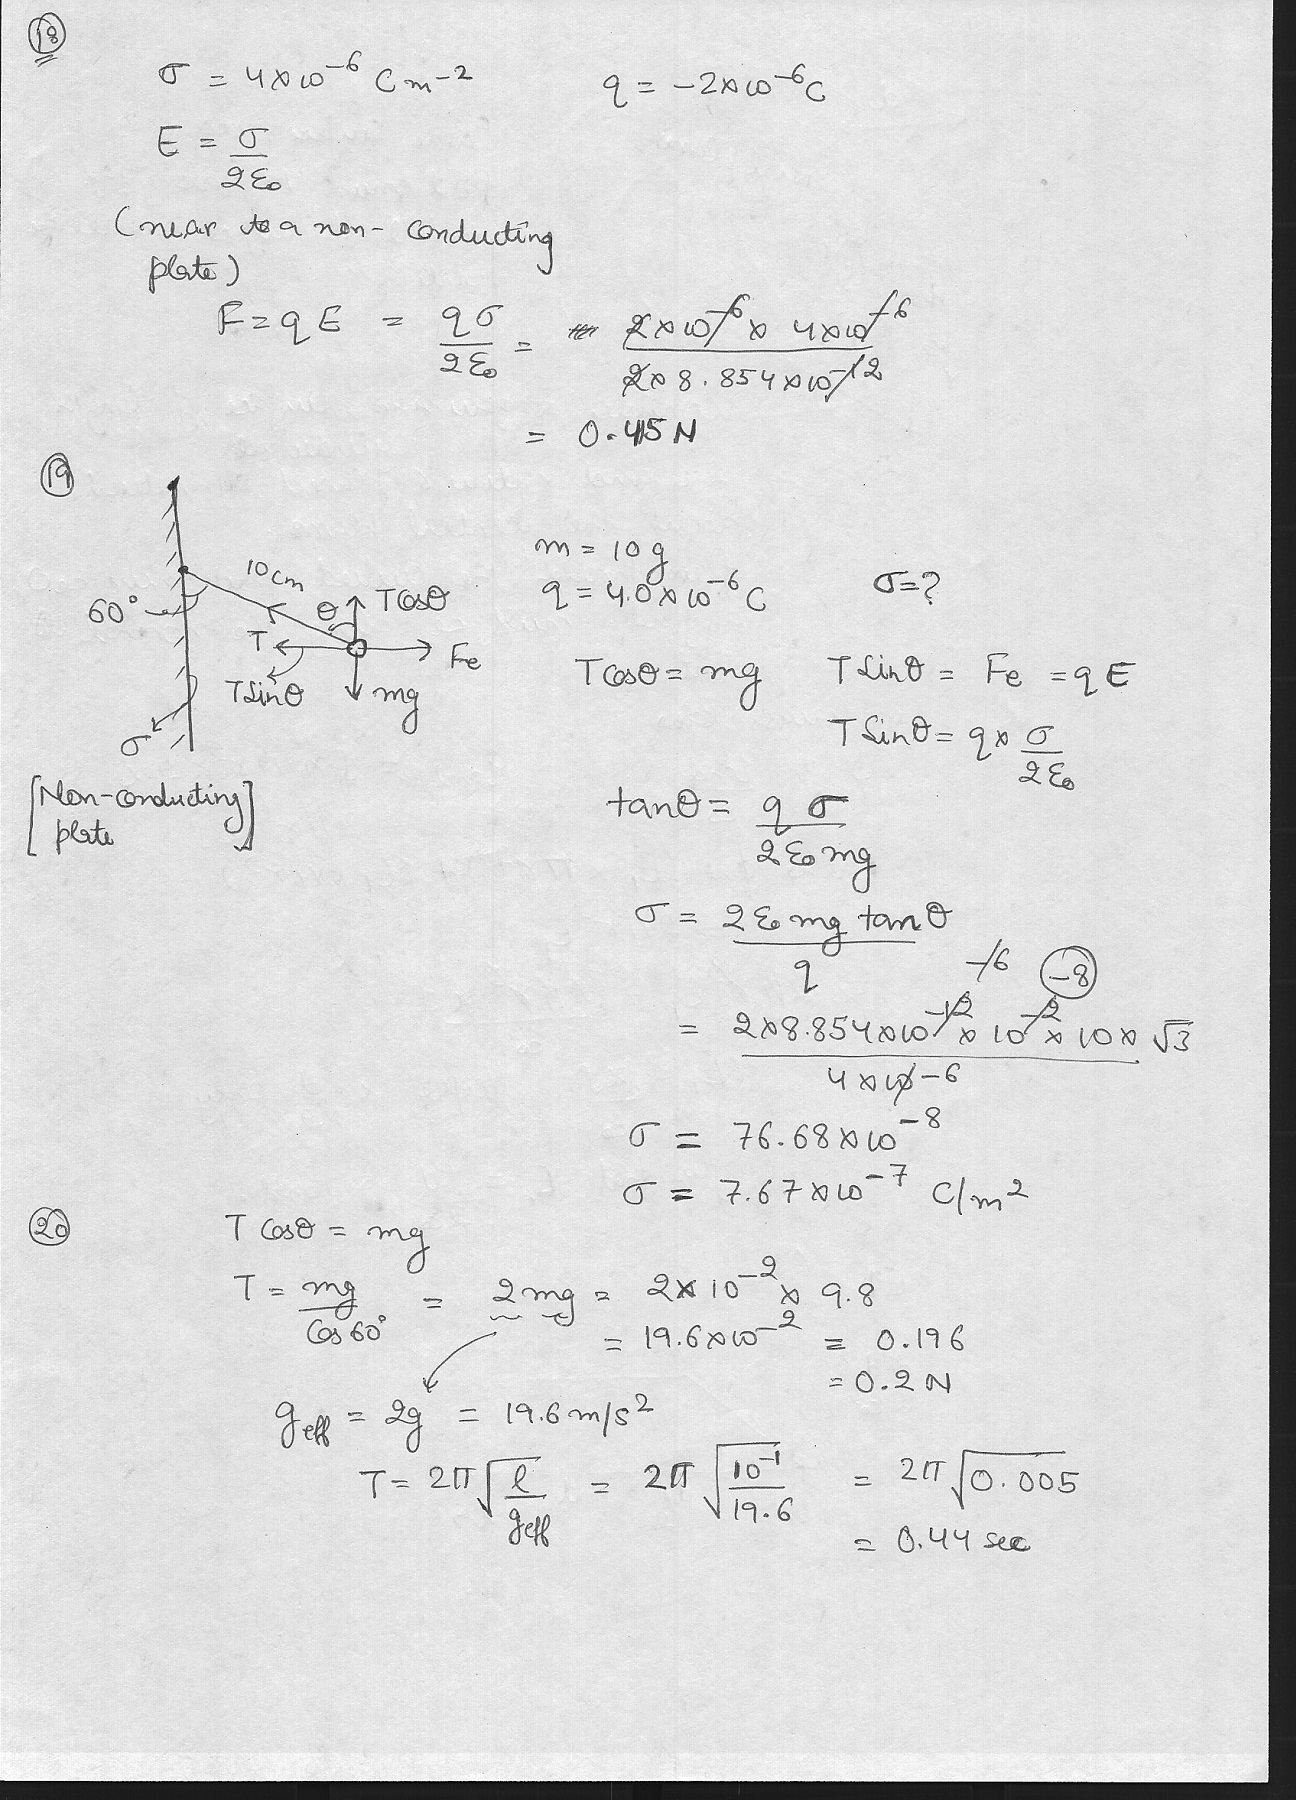 18
σ = 4×10⁻⁶ C m⁻² q = -2×10⁻⁶C
E = σ/2ε₀
(near to a non-conducting
plate)
F=qE = qσ/2ε₀ = 2×10⁻⁶ × 4×10⁻⁶ / 2×8.854×10⁻¹²
= 0.45 N
19
10cm
60°
θ
T cosθ
T
Fe
T sinθ
mg
σ
[Non-conducting
plate]
m = 10 g
q = 4.0×10⁻⁶ C σ=?
T cosθ = mg T sinθ = Fe = qE
T sinθ = q× σ/2ε₀
tanθ = qσ/2ε₀mg
σ = 2ε₀ mg tanθ/q
-6 -8
= 2×8.854×10⁻¹² × 10⁻² × 10 × √3 / 4×10⁻⁶
σ = 76.68×10⁻⁸
σ = 7.67×10⁻⁷ C/m²
20
T cosθ = mg
T = mg/cos60° = 2mg = 2×10⁻² × 9.8
= 19.6×10⁻² = 0.196
= 0.2 N
g eff = 2g = 19.6 m/s²
T = 2π√(l/g eff) = 2π√(10⁻¹/19.6) = 2π√0.005
= 0.44 sec